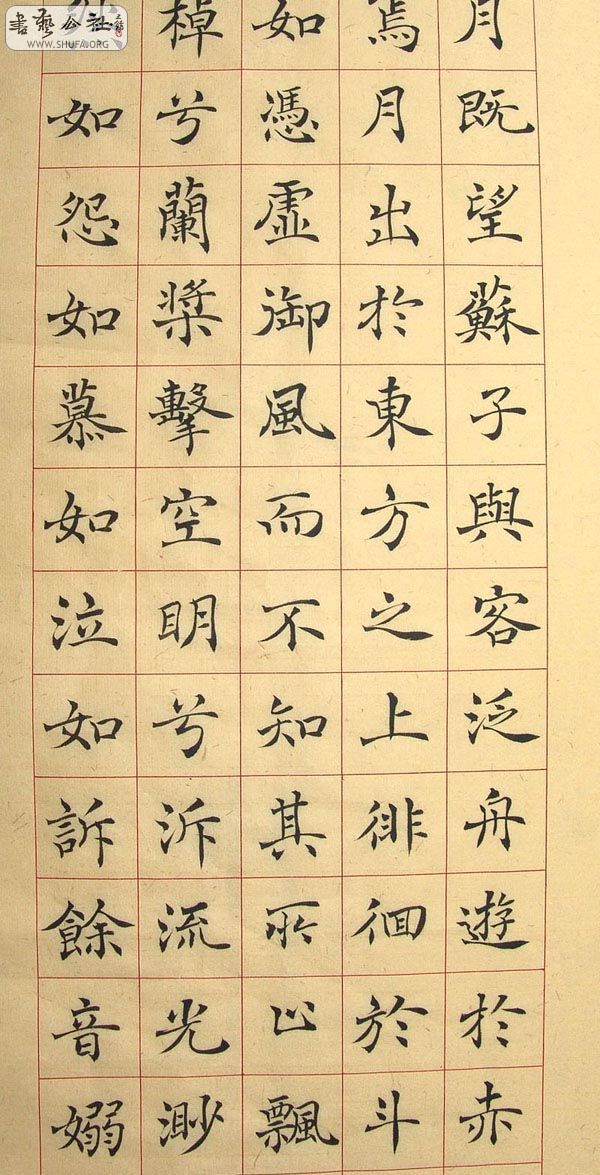 書藝公社
WWW.SHUFA.ORG
月既望蘇子與客泛舟遊於赤
焉月出於東方之上徘徊於斗
如憑虛御風而不知其所止飄
棹兮蘭槳擊空明兮泝流光渺
如怨如慕如泣如訴餘音嫋